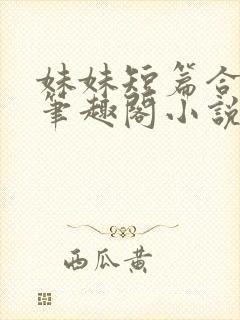 妹妹短篇合
笔趣阁小说
西瓜黄